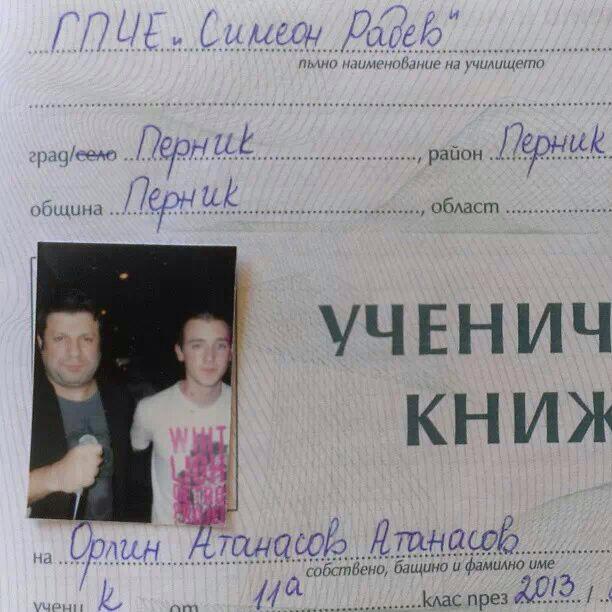 ГПЧЕ „Симеон Радев“
пълно наименование на училището
град/село Перник, район Перник
община Перник, област
УЧЕНИЧ
КНИЖ
на Орлин Атанасов Атанасов
собствено, бащино и фамилно име
учени к от 11а клас през 2013 /